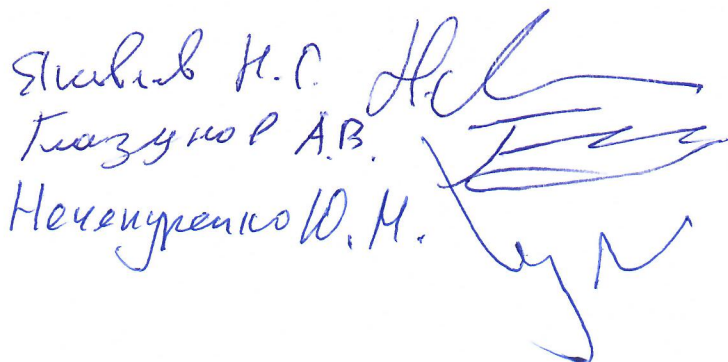 Яковлев Н.Г.
Глазунов А.В.
Нечепуренко Ю.М.